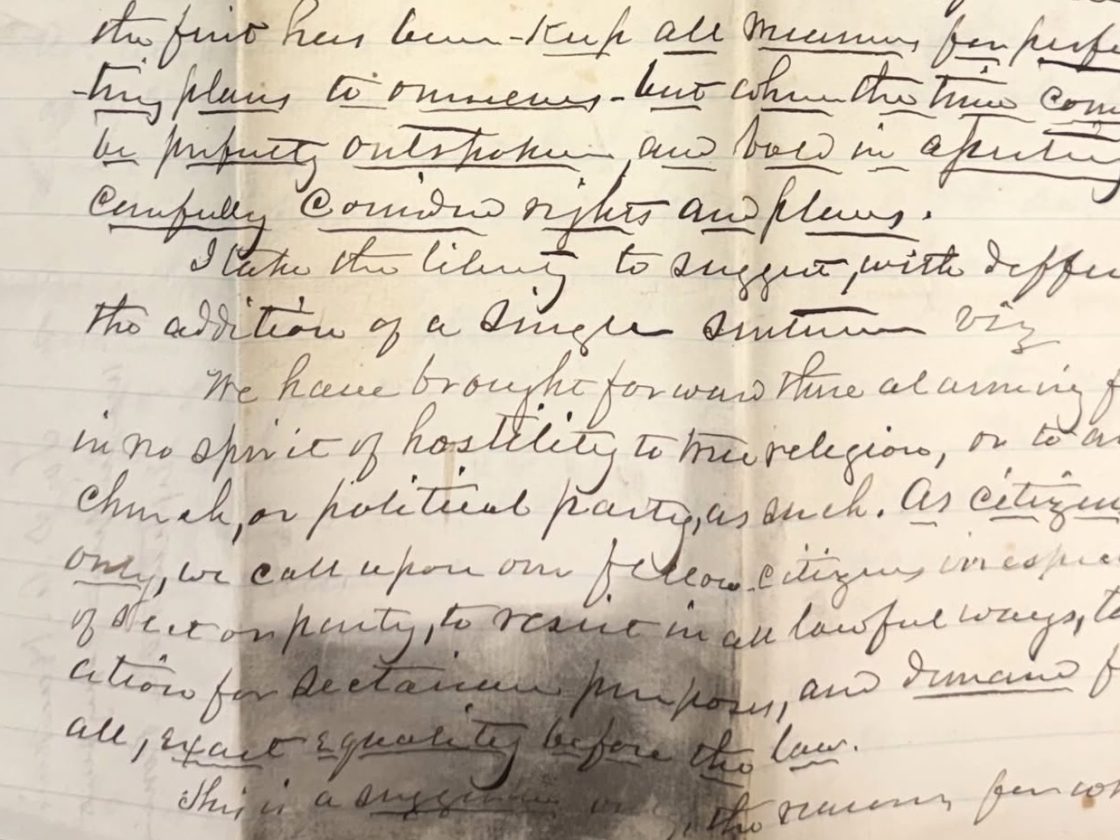 the first has been - Keep all measures for perfec
-ting plans to ourselves - but when the time com
be perfectly outspoken and bold in asserting
carefully considered rights and plans.
I take the liberty to suggest, with deffer
the addition of a single sentence viz
We have brought forward these alarming f
in no spirit of hostility to true religion, or to a
church, or political party, as such. As citizens
only, we call upon our fellow-citizens irrespec
of sect or party, to resist in all lawful ways, t
ation for sectarian purposes, and demand f
all, exact equality before the law.
This is a suggestion the reasons for